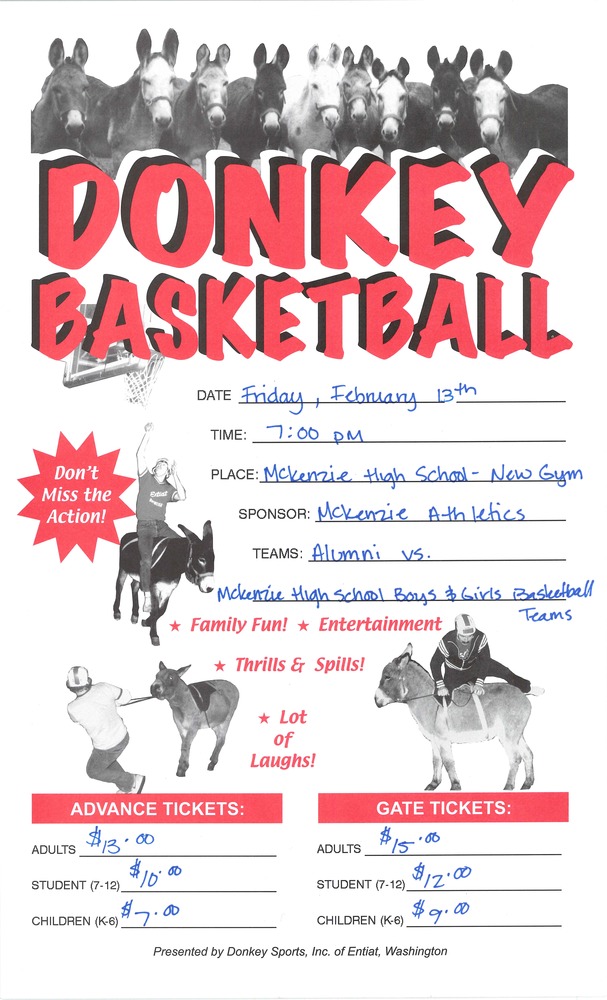 DONKEY
BASKETBALL
DATE Friday, February 13th
TIME: 7:00 PM
Don't
Miss the
Action!
PLACE: Mckenzie High School - New Gym
SPONSOR: Mckenzie Athletics
TEAMS: Alumni vs.
Mckenzie High School Boys & Girls Basketball
Teams
★ Family Fun! ★ Entertainment
★ Thrills & Spills!
★ Lot
of
Laughs!
ADVANCE TICKETS:
ADULTS $13.00
STUDENT (7-12) $10.00
CHILDREN (K-6) $7.00
GATE TICKETS:
ADULTS $15.00
STUDENT (7-12) $12.00
CHILDREN (K-6) $9.00
Presented by Donkey Sports, Inc. of Entiat, Washington